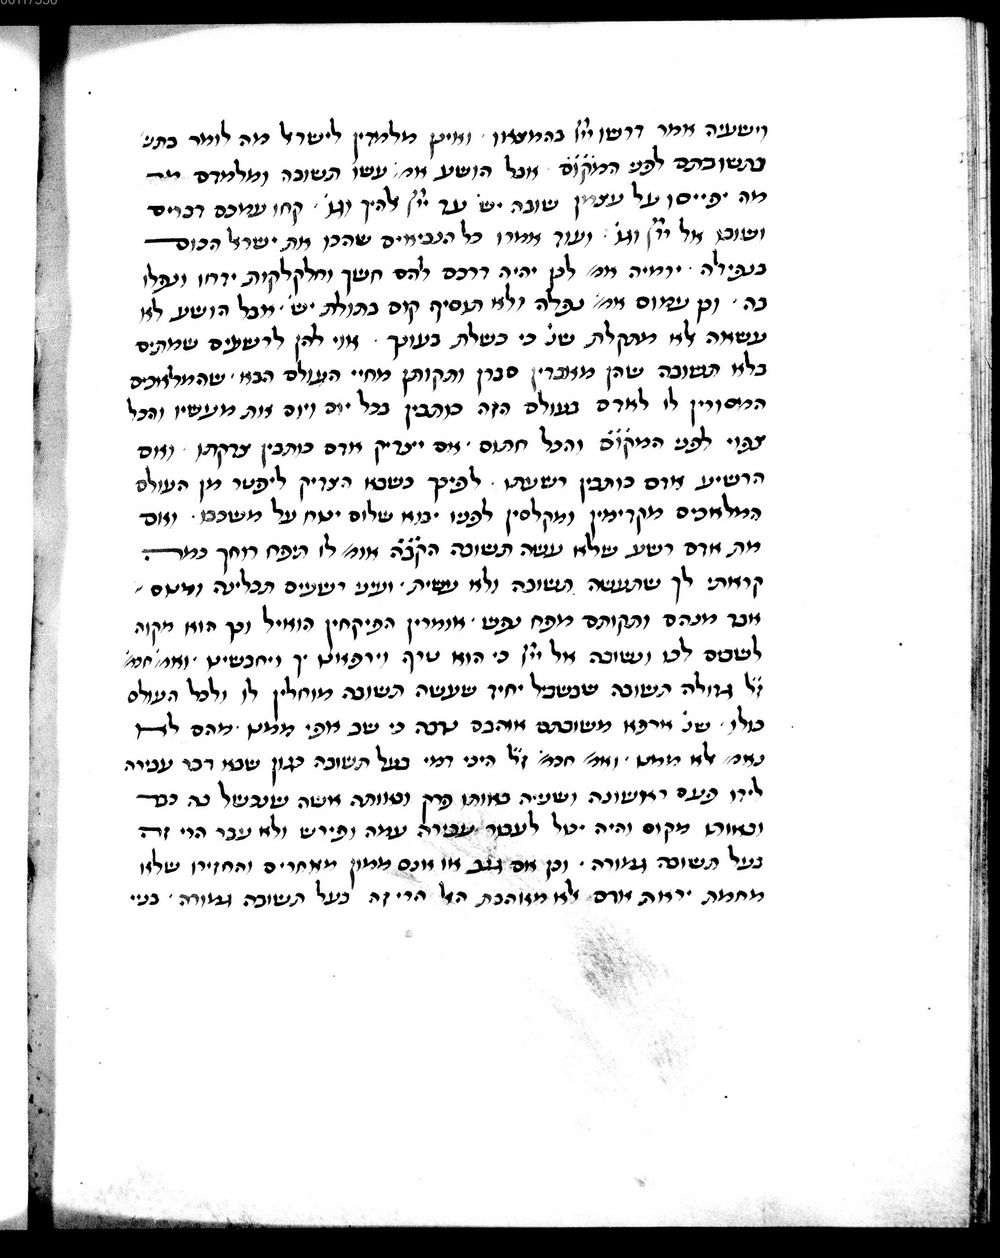 00117338
וישעיה אמר דרשו ייי בהמצאו · ואינן מלמדין לישראל מה לומר בתני
בתשובתם לפני המקום · אבל הושע אמ' עשו תשובה ומלמדם מה
מה יפייסו על עצמן שובה יש' עד ייי אלהיך וגו' · קחו עמכם דברים
ושובו אל ייי וגו' · ועוד אמרו כל הנביאים שהכו את ישראל הכום
בנפילה · ירמיה אמ' לכן יהיה דרכם להם חשך וחלקלקות ידחו ונפלו
בה · וכן עמוס אמ' נפלה ולא תוסיף קום בתולת יש' · אבל הושע לא
עשאה לא מתקלת שנ' כי כשלת בעונך · אוי להן לרשעים שמתים
בלא תשובה שהן מאבדין סברן ותקותן מחיי העולם הבא · שהמלאכים
המסורין לו לאדם בעולם הזה כותבין בכל יום ויום את מעשיו והכל
צפוי לפני המקום והכל חתום · אם ייצדיק אדם כותבין צדקתו · ואם
הרשיע אדם כותבין רשעתו · לפיכך כשבא הצדיק ליפטר מן העולם
המלאכים מקדימין ומקלסין לפניו יבוא שלום ינוח על משכבו · ואם
מת אדם רשע שלא עשה תשובה הקבה אומ' לו תיפח רוחך כמה
קראתי לך שתעשה תשובה ולא עשית · ועיני רשעים תכלינה ומנוס
אבד מנהם ותקותם מפח נפש · אומרין הפיקחין הואיל וכך הוא מקוה
לשבים לכו ונשובה אל ייי כי הוא טרף וירפאנו יך ויחבשינו · ואמ' חכמ'
ז"ל גדולה תשובה שבשביל יחיד שעשה תשובה מוחלין לו ולכל העולם
כולו · שנ' ארפא משובתם אוהבם נדבה כי שב אפי ממנו · מהם לא
נאמ' לא ממנו · ואמ' חכמ' ז"ל היכי דמי בעל תשובה כגון שבא דבר עבירה
לידו פעם ראשונה ושנייה באותו פרק ובאותה אשה שנכשל בה כבר
ובאותו מקום והיה יכול לעבור עבירה עמה ופירש ולא עבר הרי זה
בעל תשובה גמורה · וכן אם גנב או אנס ממון מאחרים והחזירו שלא
מחמת יראת אדם אלא מאהבת האל הרי זה בעל תשובה גמורה · בניי